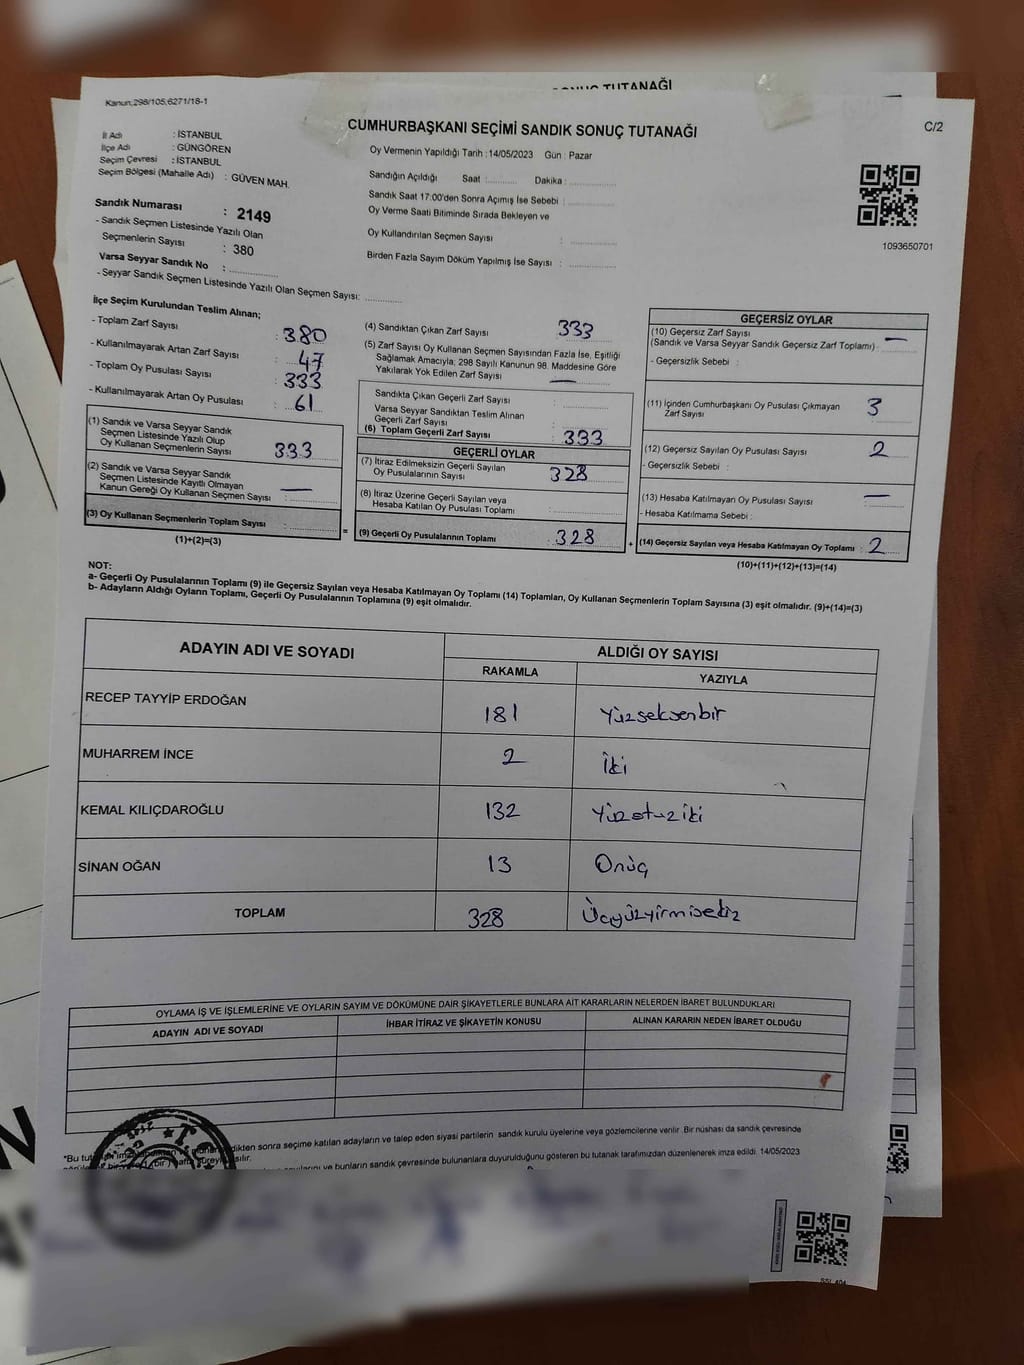 SONUÇ TUTANAĞI
Kanun,298/105,6271/18-1
CUMHURBAŞKANI SEÇİMİ SANDIK SONUÇ TUTANAĞI
C/2
İl Adı : İSTANBUL
İlçe Adı : GÜNGÖREN
Seçim Çevresi : İSTANBUL
Seçim Bölgesi (Mahalle Adı) : GÜVEN MAH.
Oy Vermenin Yapıldığı Tarih : 14/05/2023 Gün : Pazar
Sandığın Açıldığı Saat :.......... Dakika :..........
Sandık Saat 17:00'den Sonra Açımış İse Sebebi :..........
Oy Verme Saati Bitiminde Sırada Bekleyen ve
Oy Kullandırılan Seçmen Sayısı :..........
Birden Fazla Sayım Döküm Yapılmış İse Sayısı :..........
1093650701
Sandık Numarası : 2149
- Sandık Seçmen Listesinde Yazılı Olan
Seçmenlerin Sayısı : 380
Varsa Seyyar Sandık No :..........
- Seyyar Sandık Seçmen Listesinde Yazılı Olan Seçmen Sayısı:..........
İlçe Seçim Kurulundan Teslim Alınan;
- Toplam Zarf Sayısı : 380
- Kullanılmayarak Artan Zarf Sayısı : 47
- Toplam Oy Pusulası Sayısı : 333
- Kullanılmayarak Artan Oy Pusulası : 61
(1) Sandık ve Varsa Seyyar Sandık
Seçmen Listesinde Yazılı Olup
Oy Kullanan Seçmenlerin Sayısı 333
(2) Sandık ve Varsa Seyyar Sandık
Seçmen Listesinde Kayıtlı Olmayan
Kanun Gereği Oy Kullanan Seçmen Sayısı : —
(3) Oy Kullanan Seçmenlerin Toplam Sayısı :..........
(1)+(2)=(3)
=
(4) Sandıktan Çıkan Zarf Sayısı 333
(5) Zarf Sayısı Oy Kullanan Seçmen Sayısından Fazla İse, Eşitliği
Sağlamak Amacıyla, 298 Sayılı Kanunun 98. Maddesine Göre
Yakılarak Yok Edilen Zarf Sayısı —
Sandıkta Çıkan Geçerli Zarf Sayısı :..........
Varsa Seyyar Sandıktan Teslim Alınan
Geçerli Zarf Sayısı :..........
(6) Toplam Geçerli Zarf Sayısı : 333
GEÇERLİ OYLAR
(7) İtiraz Edilmeksizin Geçerli Sayılan
Oy Pusulalarının Sayısı 328
(8) İtiraz Üzerine Geçerli Sayılan veya
Hesaba Katılan Oy Pusulası Toplamı :..........
(9) Geçerli Oy Pusulalarının Toplamı : 328
+
GEÇERSİZ OYLAR
(10) Geçersiz Zarf Sayısı
(Sandık ve Varsa Seyyar Sandık Geçersiz Zarf Toplamı) : —
- Geçersizlik Sebebi :
(11) İçinden Cumhurbaşkanı Oy Pusulası Çıkmayan
Zarf Sayısı 3
(12) Geçersiz Sayılan Oy Pusulası Sayısı : 2
- Geçersizlik Sebebi :
(13) Hesaba Katılmayan Oy Pusulası Sayısı : —
- Hesaba Katılmama Sebebi :
(14) Geçersiz Sayılan veya Hesaba Katılmayan Oy Toplamı : 2
(10)+(11)+(12)+(13)=(14)
NOT:
a- Geçerli Oy Pusulalarının Toplamı (9) ile Geçersiz Sayılan veya Hesaba Katılmayan Oy Toplamı (14) Toplamları, Oy Kullanan Seçmenlerin Toplam Sayısına (3) eşit olmalıdır. (9)+(14)=(3)
b- Adayların Aldığı Oyların Toplamı, Geçerli Oy Pusulalarının Toplamına (9) eşit olmalıdır.
ADAYIN ADI VE SOYADI ALDIĞI OY SAYISI
RAKAMLA YAZIYLA
RECEP TAYYİP ERDOĞAN 181 Yüzseksenbir
MUHARREM İNCE 2 İki
KEMAL KILIÇDAROĞLU 132 Yüzotuziki
SİNAN OĞAN 13 Onüç
TOPLAM 328 Üçyüzyirmisekiz
OYLAMA İŞ VE İŞLEMLERİNE VE OYLARIN SAYIM VE DÖKÜMÜNE DAİR ŞİKAYETLERLE BUNLARA AİT KARARLARIN NELERDEN İBARET BULUNDUKLARI
ADAYIN ADI VE SOYADI İHBAR İTİRAZ VE ŞİKAYETİN KONUSU ALINAN KARARIN NEDEN İBARET OLDUĞU
*Bu dikten sonra seçime katılan adayların ve talep eden siyasi partilerin sandık kurulu üyelerine veya gözlemcilerine verilir. Bir nüshası da sandık çevresinde
ve bunların sandık çevresinde bulunanlara duyurulduğunu gösteren bu tutanak tarafımızdan düzenlenerek imza edildi. 14/05/2023